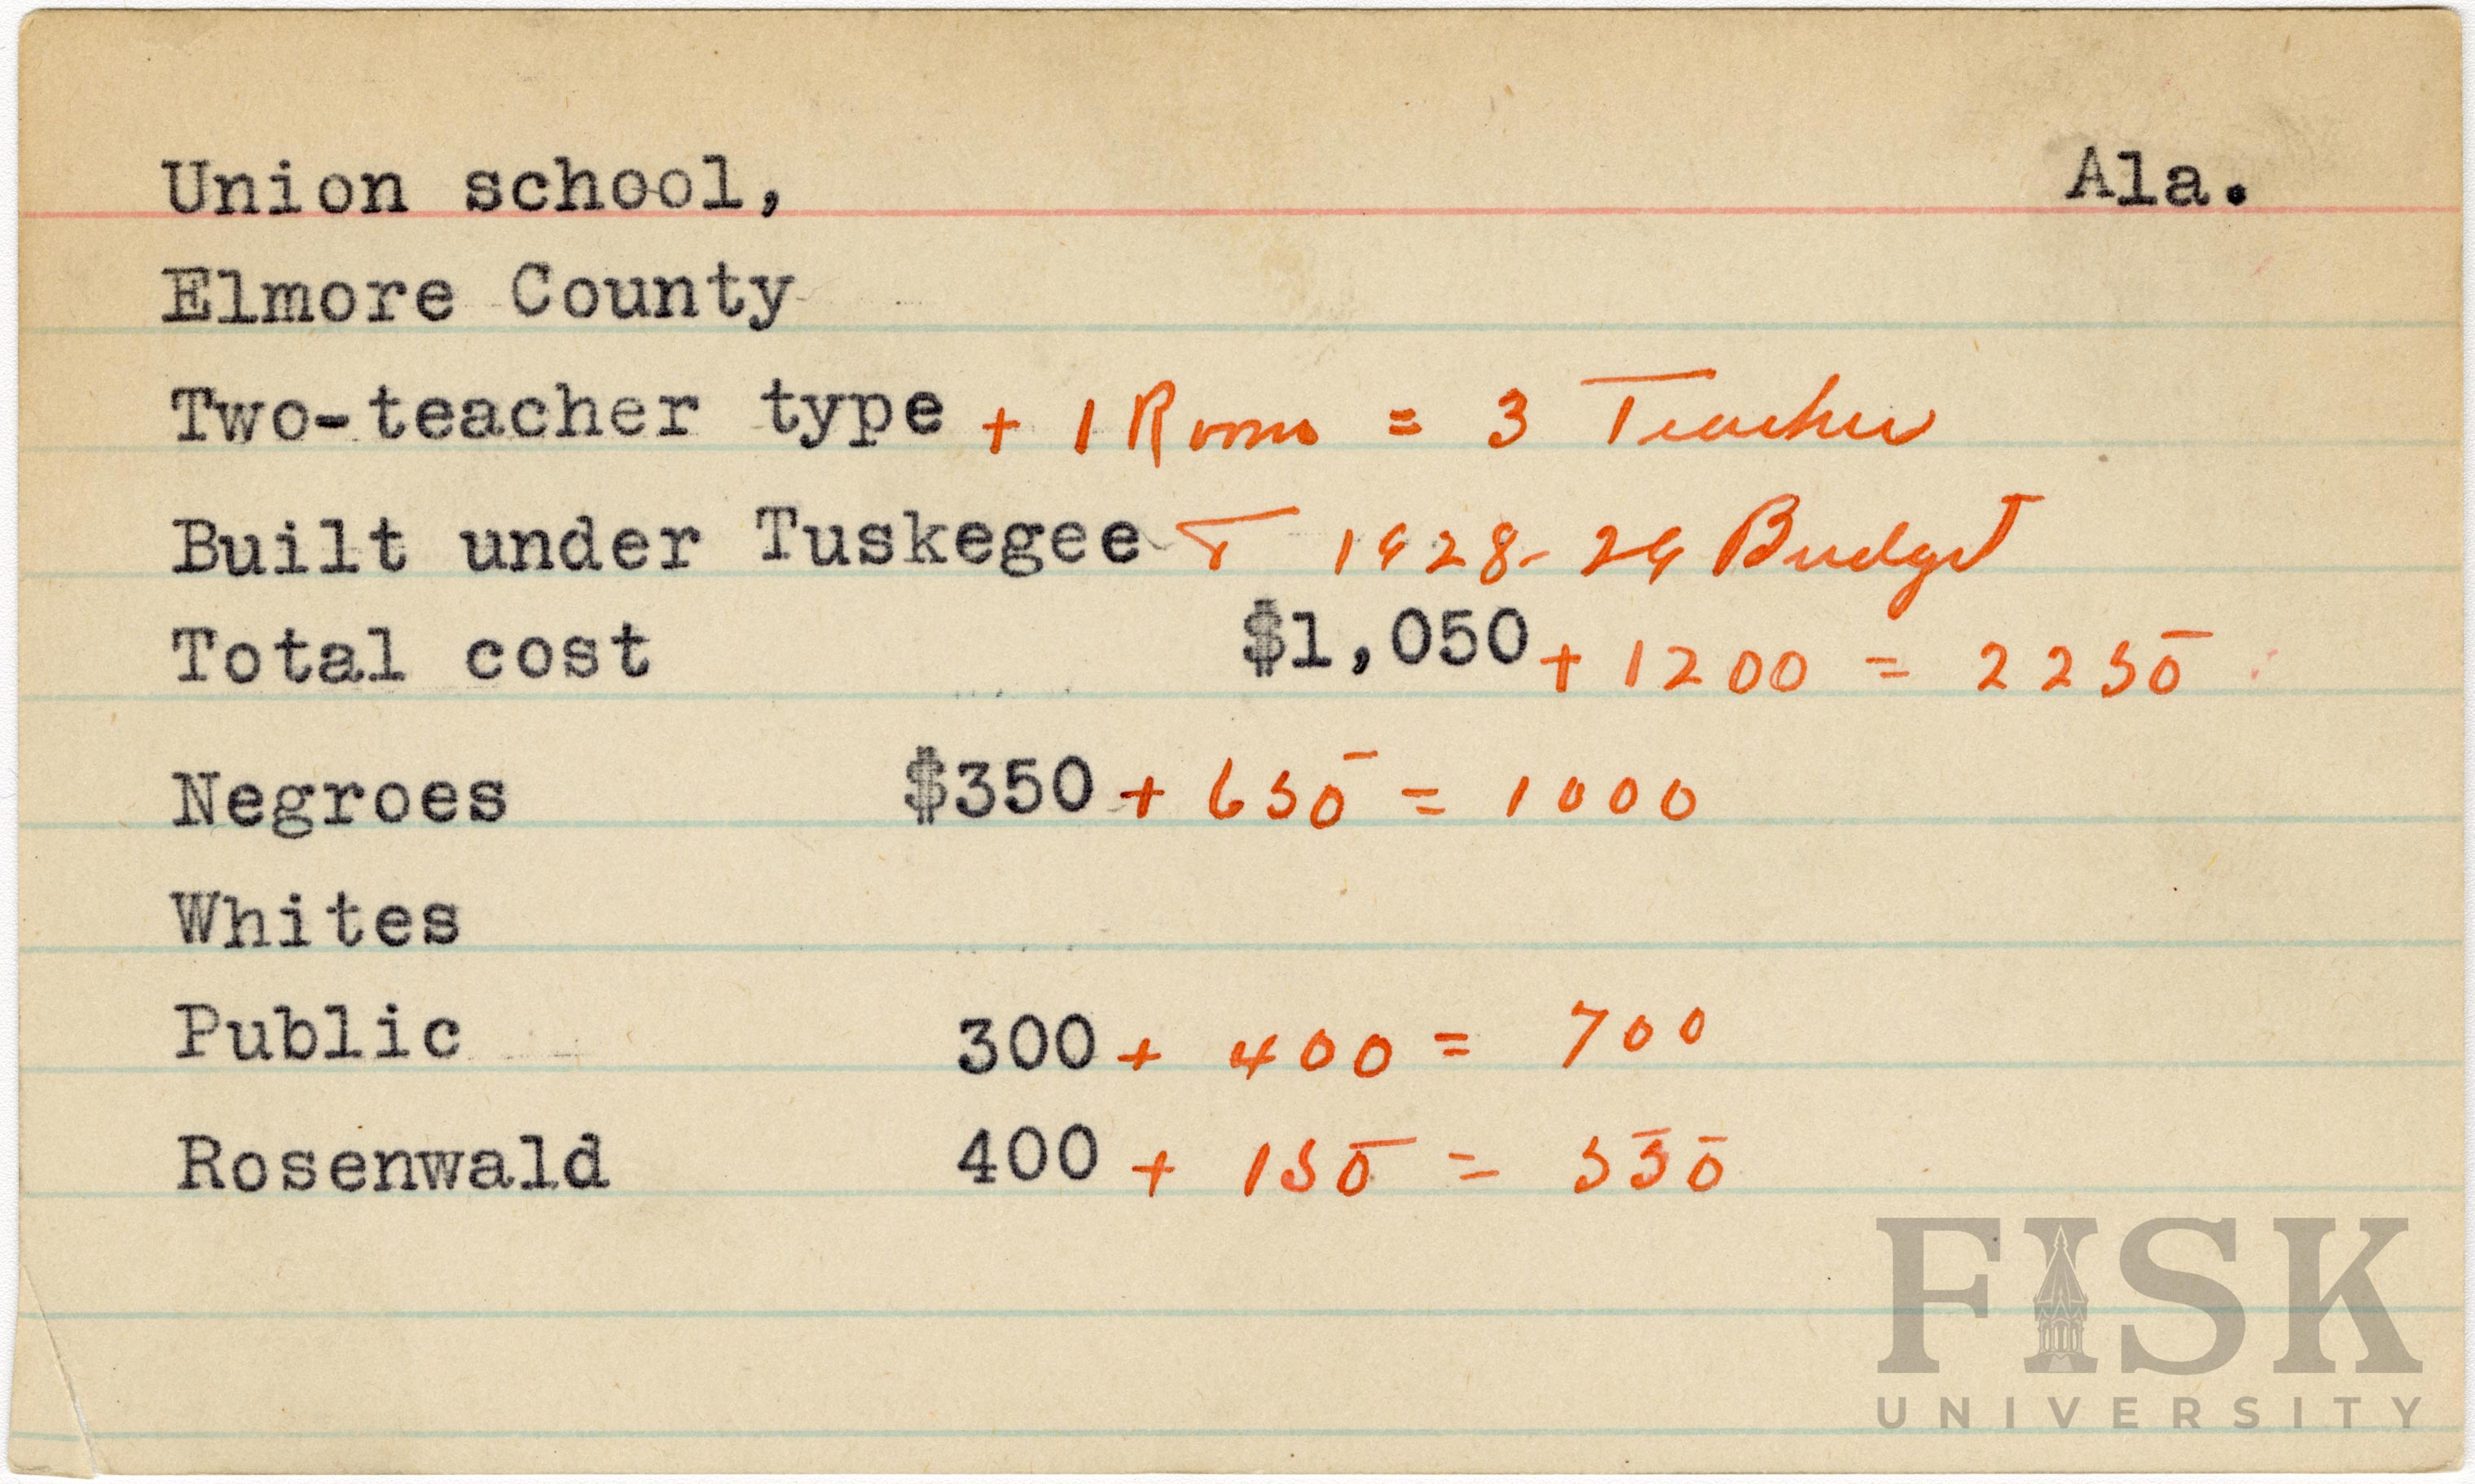 Union school, Ala.
Elmore County
Two-teacher type + 1 Room = 3 Teacher
Built under Tuskegee & 1928-29 Budget
Total cost $1,050 + 1200 = 2250
Negroes $350 + 650 = 1000
Whites
Public 300 + 400 = 700
Rosenwald 400 + 150 = 550
FISK
UNIVERSITY